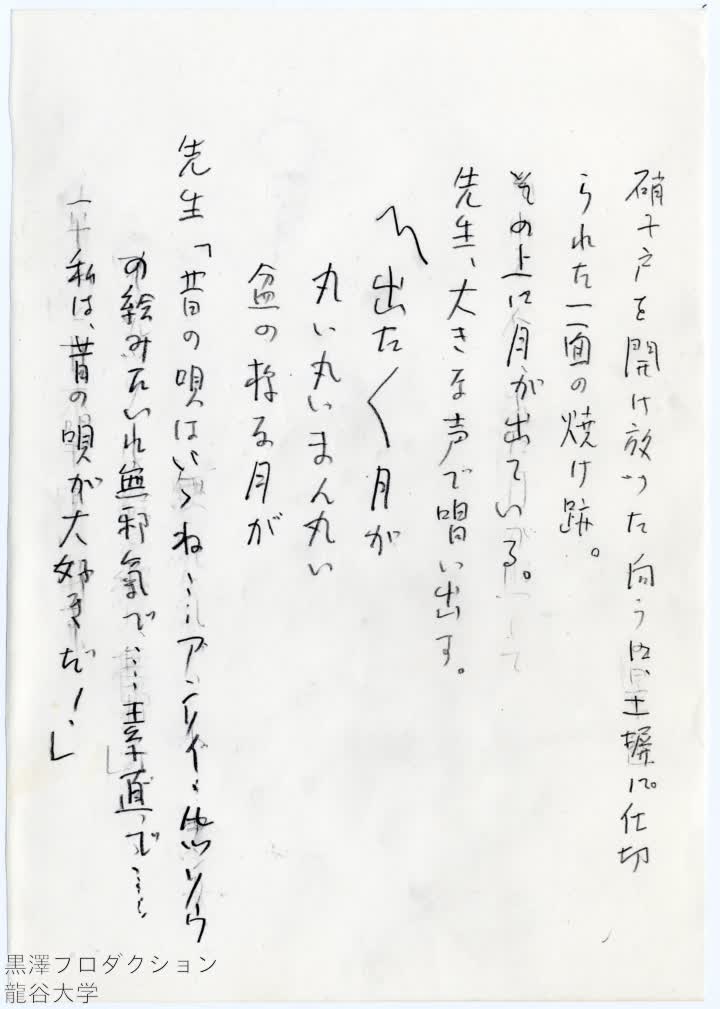 硝子戸を開け放った向うは、土塀で仕切
られた一面の焼け跡。
その上に月が出ている。
先生、大きな声で唱い出す。
〽出た〱月が
丸い丸いまん丸い
盆の様な月が
先生「昔の唄はいゝね……アンリイ・ルソウ
の絵みたいに無邪氣で……素直で……
私は、昔の唄が大好きだ！」
黒澤プロダクション
龍谷大学